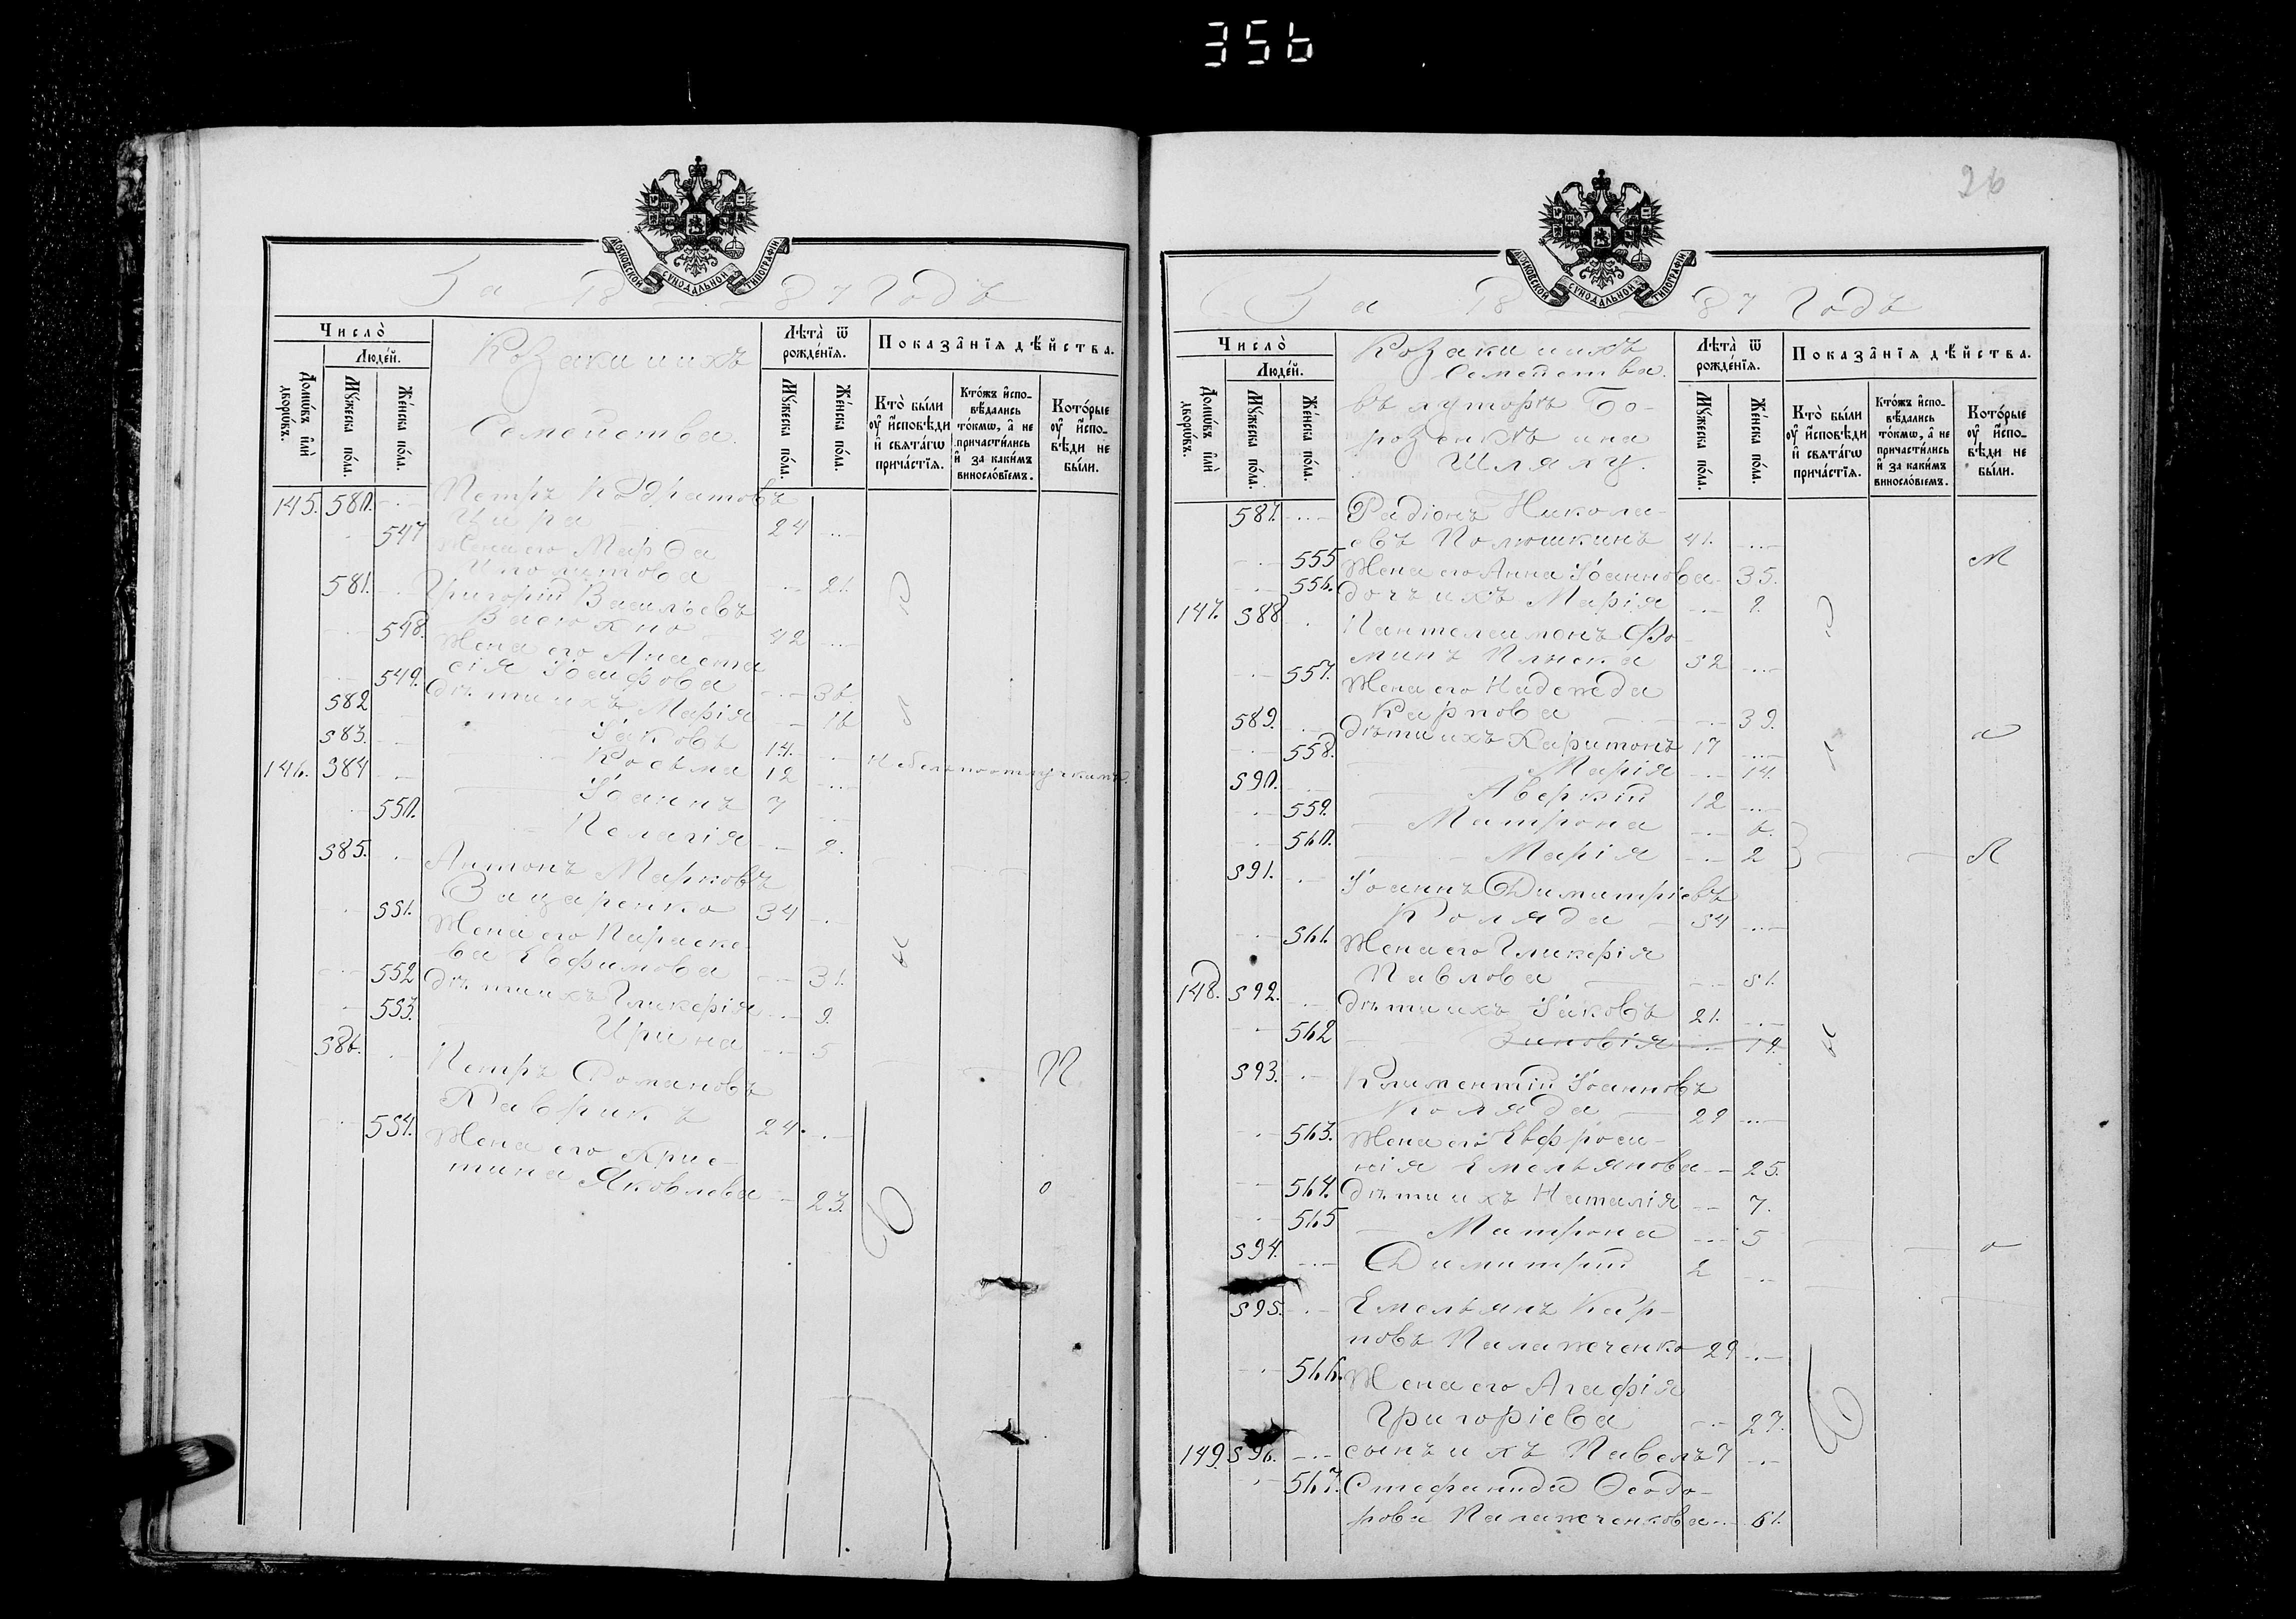 356
МОСКОВСКОЙ СУНОДАЛЬНОЙ ТИПОГРАФІИ
За 1887 Годъ
Число̀
Людей.
Домѡвъ и҆лѝ дворѡ́въ.
Мꙋ́жеска по́ла.
Же́нска по́ла.
Козаки и ихъ
Семейства.
Лѣта̀ ѿ рожде́нїѧ.
Мꙋ́жеска по́ла.
Же́нска по́ла.
Показа̑нїѧ дѣ́йства.
Кто̀ бы́ли ᲂу҆ и҆сповѣди и҆ свѧта́гѡ прича́стїѧ.
Кто́жъ и҆спо-вѣ́дались то́кмѡ, а҆ не причасти́лись и҆ за каки́мъ винословїемъ.
Кото́рые ᲂу҆ и҆спо-вѣди не бы́ли.
145. 580. Петръ Кодратовъ
Цира 24
547 Жена его Марѳа
Иполитова 21.
581. Григорій Васильевъ
Васюхно 42
548. Жена его Анаста
сія Іосифова 36.
549. Дѣти ихъ Марія 16
582 Іаковъ 14.
583. Косьма 12
146. 584 Іоаннъ 7
550. Пелагія 2.
585. Антонъ Марковъ
Зацаренко 34
551. Жена его Параске-
ва Евфимова 31.
552 Дѣти ихъ Гликерія 9.
553. Ирина 5
586. Петръ Романовъ
Каврикъ 24.
554. Жена его Хрис-
тина Яковлева 23.
26
МОСКОВСКОЙ СУНОДАЛЬНОЙ ТИПОГРАФІИ
За 1887 Годъ
Число̀
Людей.
Домѡвъ и҆лѝ дворѡ́въ.
Мꙋ́жеска по́ла.
Же́нска по́ла.
Козаки и ихъ
Семейства.
въ хуторѣ Бо-
розенкѣ и на
Шляху.
Лѣта̀ ѿ рожде́нїѧ.
Мꙋ́жеска по́ла.
Же́нска по́ла.
Показа̑нїѧ дѣ́йства.
Кто̀ бы́ли ᲂу҆ и҆сповѣди и҆ свѧта́гѡ прича́стїѧ.
Кто́жъ и҆спо-вѣ́дались то́кмѡ, а҆ не причасти́лись и҆ за каки́мъ винословїемъ.
Кото́рые ᲂу҆ и҆спо-вѣди не бы́ли.
587. Радіонъ Никола-
евъ Полюшкинъ 41.
555 Жена его Анна Іоаннова 35.
556. Дочь ихъ Марія 9.
147. 588 Пантелеимонъ Фо-
минъ 52
557. Жена его Надежда
Карпова 39.
589. Дѣти ихъ Харитонъ 17
558. Марія 14.
590. Аверкій 12
559. Матрона 6.
560. Марія 2
591. Іоаннъ Димитріевъ
Коляда 54
561. Жена его Гликерія
Павлова 51.
148. 592. Дѣти ихъ Іаковъ 21.
562 Зиновія 19.
593. Климентій Іоанновъ
Коляда 29
563. Жена его Евфроси-
нія Емельянова 25.
564. Дѣти ихъ Наталія 7.
565 Матрона 5
594. Димитрій 2
595. Емельянъ Кар-
повъ Палажченко 29
566. Жена его Агафія
Григоріева 27.
149. 596. сынъ ихъ Павелъ 7
567. Стефанида Ѳеодо-
рова Палажченкова 61.